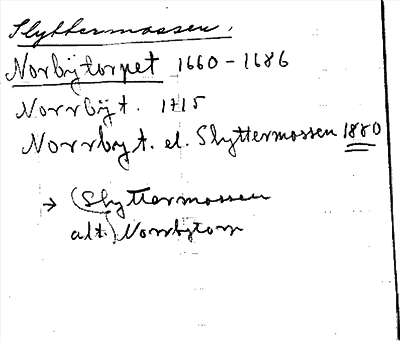 Slyttermossen.
Norbÿtorpet 1660-1686
Norrbÿt. 1715
Norrby t. el. Slyttermossen 1880
→ (Slyttermossen
alt.) Norrbytorp